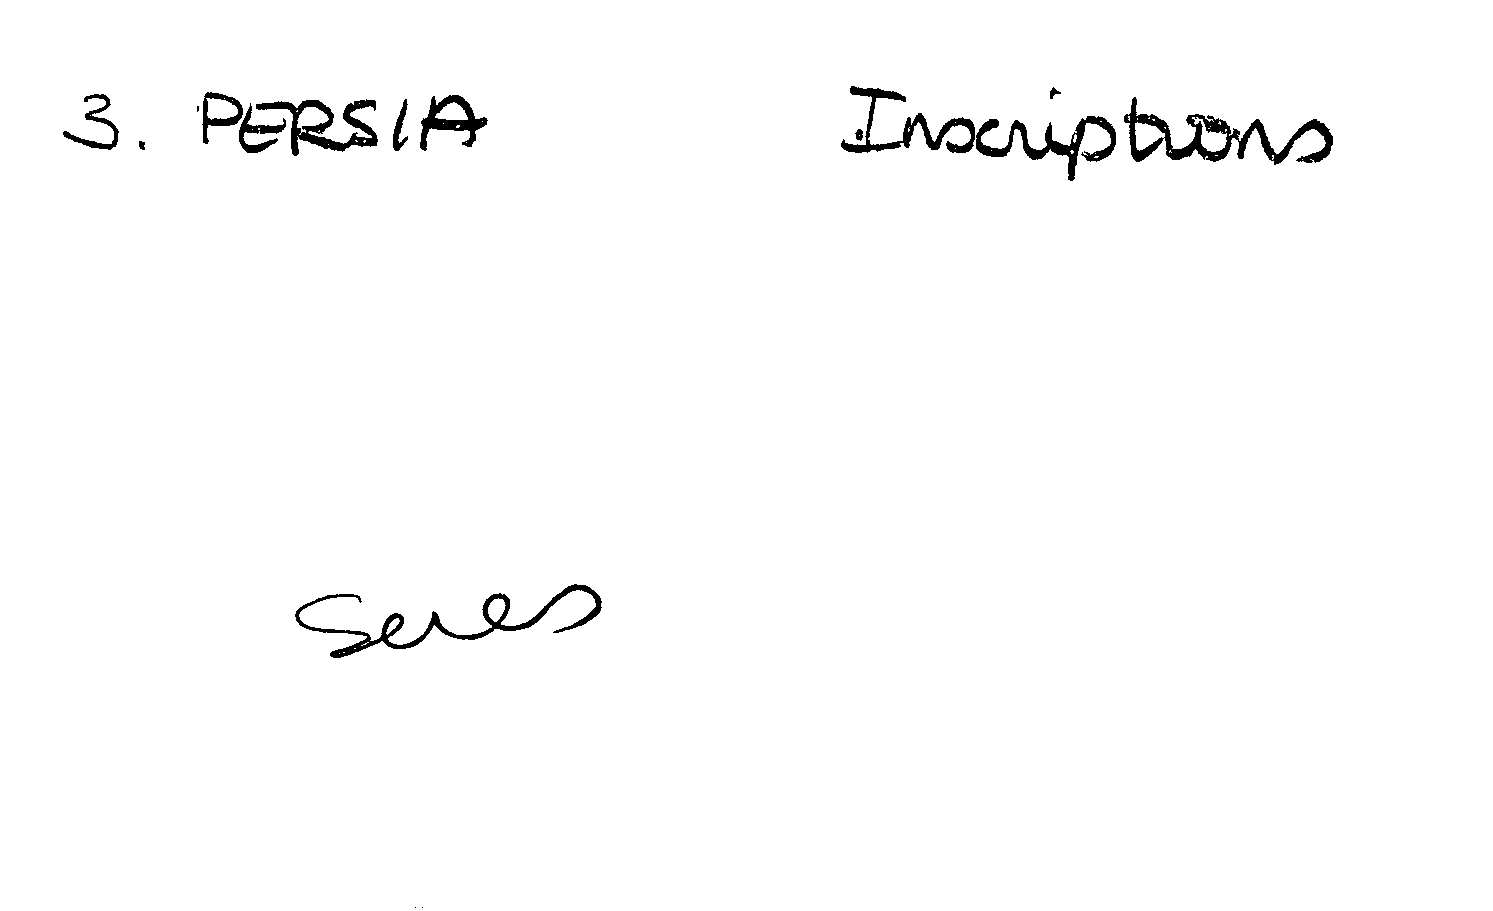 3. PERSIA Inscriptions
Seres